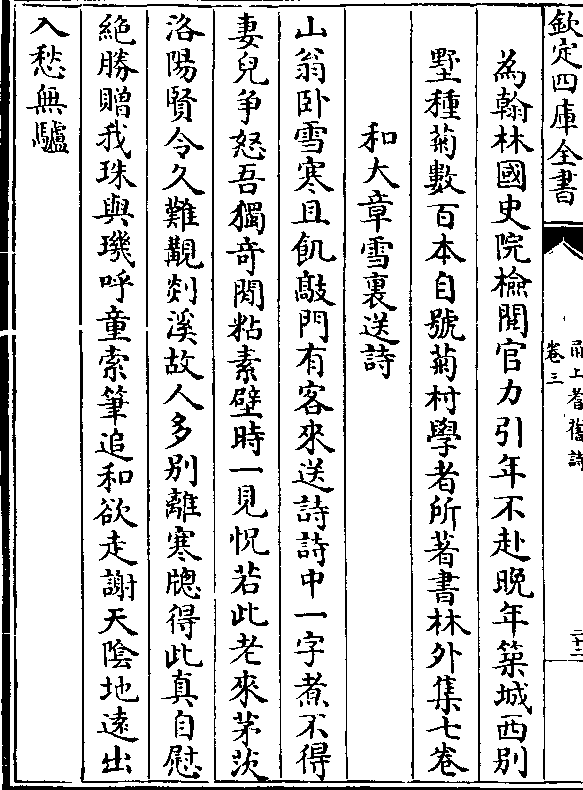 欽定四庫全書
甬上耆舊詩
卷三
為翰林國史院檢閱官力引年不赴晚年築城西别
墅種菊數百本自號菊村學者所著書林外集七卷
和大章雪裏送詩
山翁卧雪寒且飢敲門有客來送詩詩中一字煮不得
妻兒争怒吾獨奇閒粘素壁時一見怳若此老來茅茨
洛陽賢令久難覯剡溪故人多别離寒牕得此真自慰
絶勝贈我珠與璣呼童索筆追和欲走謝天隂地逺出
入愁無驢